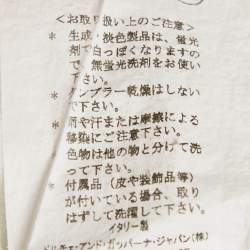 <お取り扱い上のご注意>
* 生成・淡色製品は、蛍光
剤で白っぽくなりますの
で、無蛍光洗剤をお使い
下さい。
* タンブラー乾燥はしない
で下さい。
* 雨や汗または摩擦による
移染にご注意下さい。
* 色物は他の物と分けて洗
って下さい。
* 付属品(皮や装飾品等)
が付いている場合、取り
はずして洗濯して下さい。
イタリー製
ドルチェ・アンド・ガッバーナ・ジャパン(株)